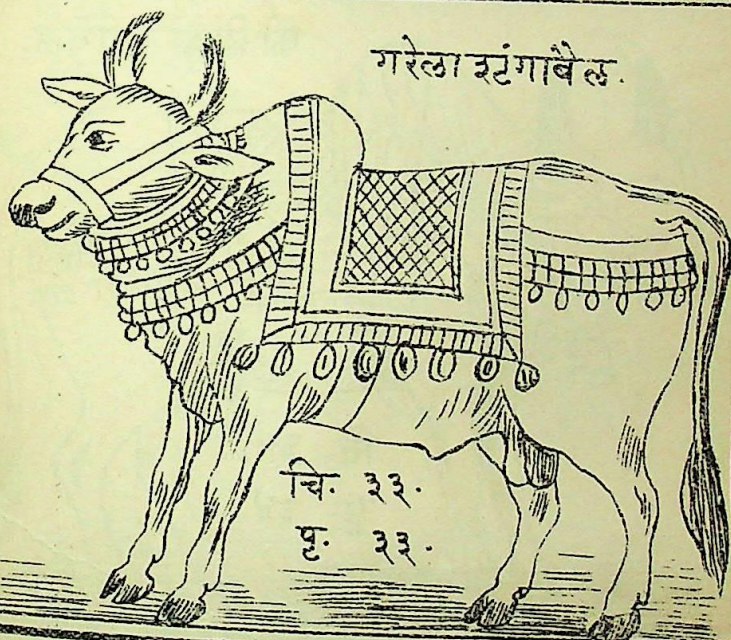 गरेला श्टंगाबैल.
चि. ३३.
पृ. ३३.